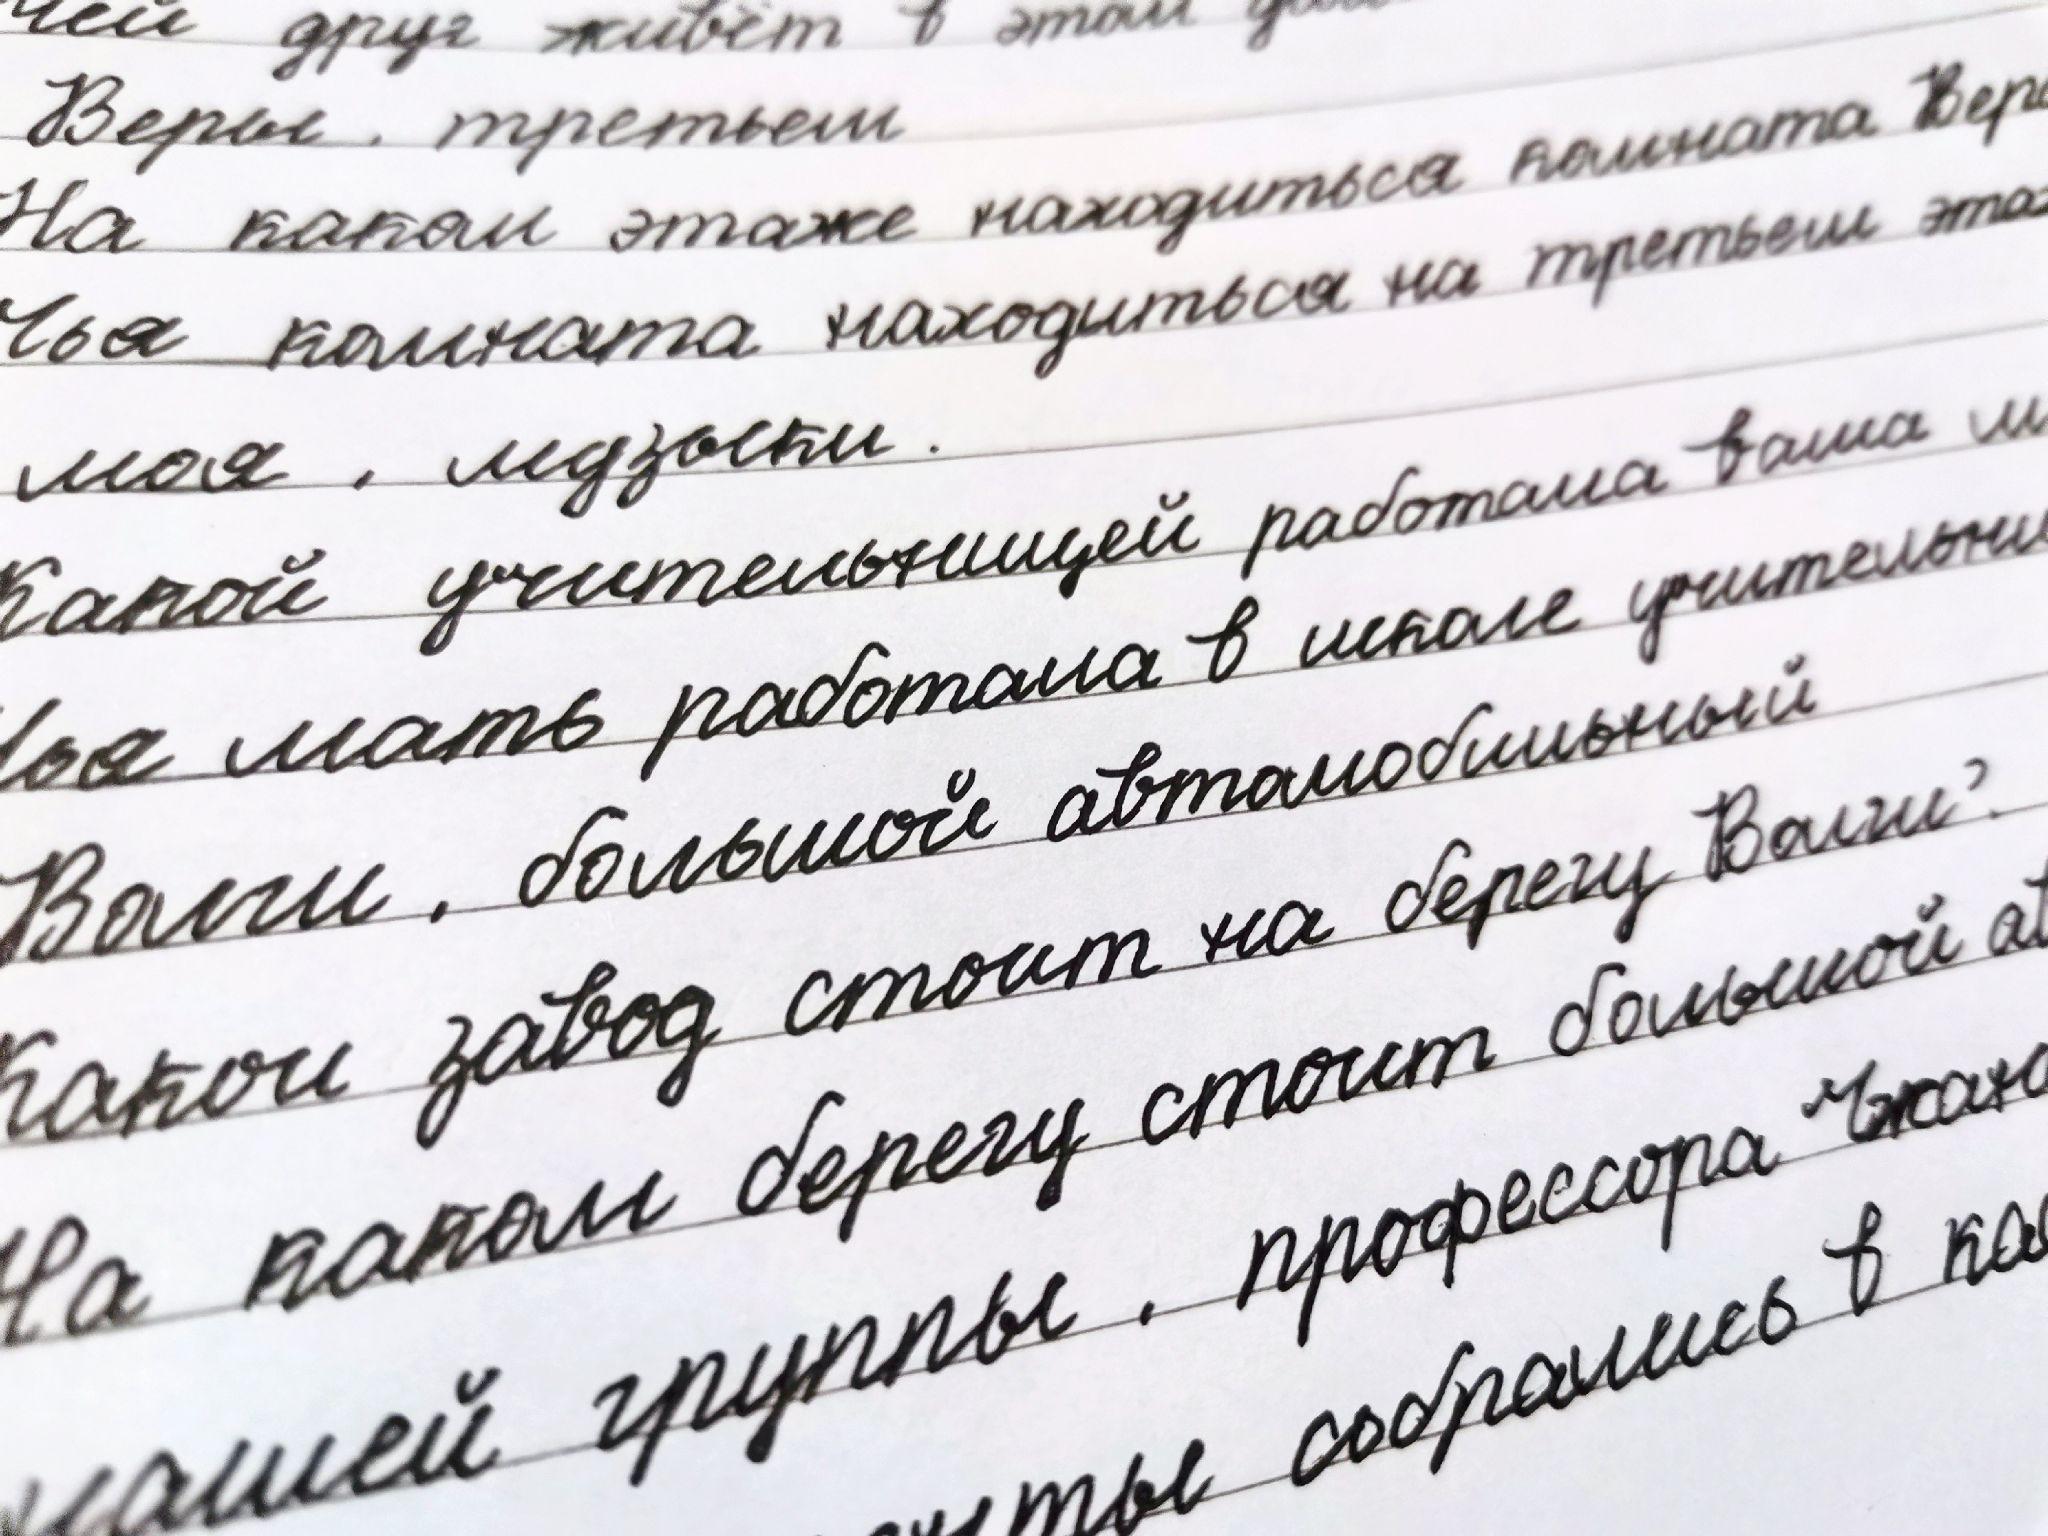 Чей друг живёт в этом
Веры, третьем
На каком этаже находиться комната Веры
Чья комната находиться на третьем этаж
моя, мдзыки.
Какой учительницей работала ваша м
Чья мать работала в школе учительни
Волги, большой автомобильный
Какои завод стоит на берегу Волги?
На каком берегу стоит большой ав
нашей группы, профессора Чжана
нты собрались в ка